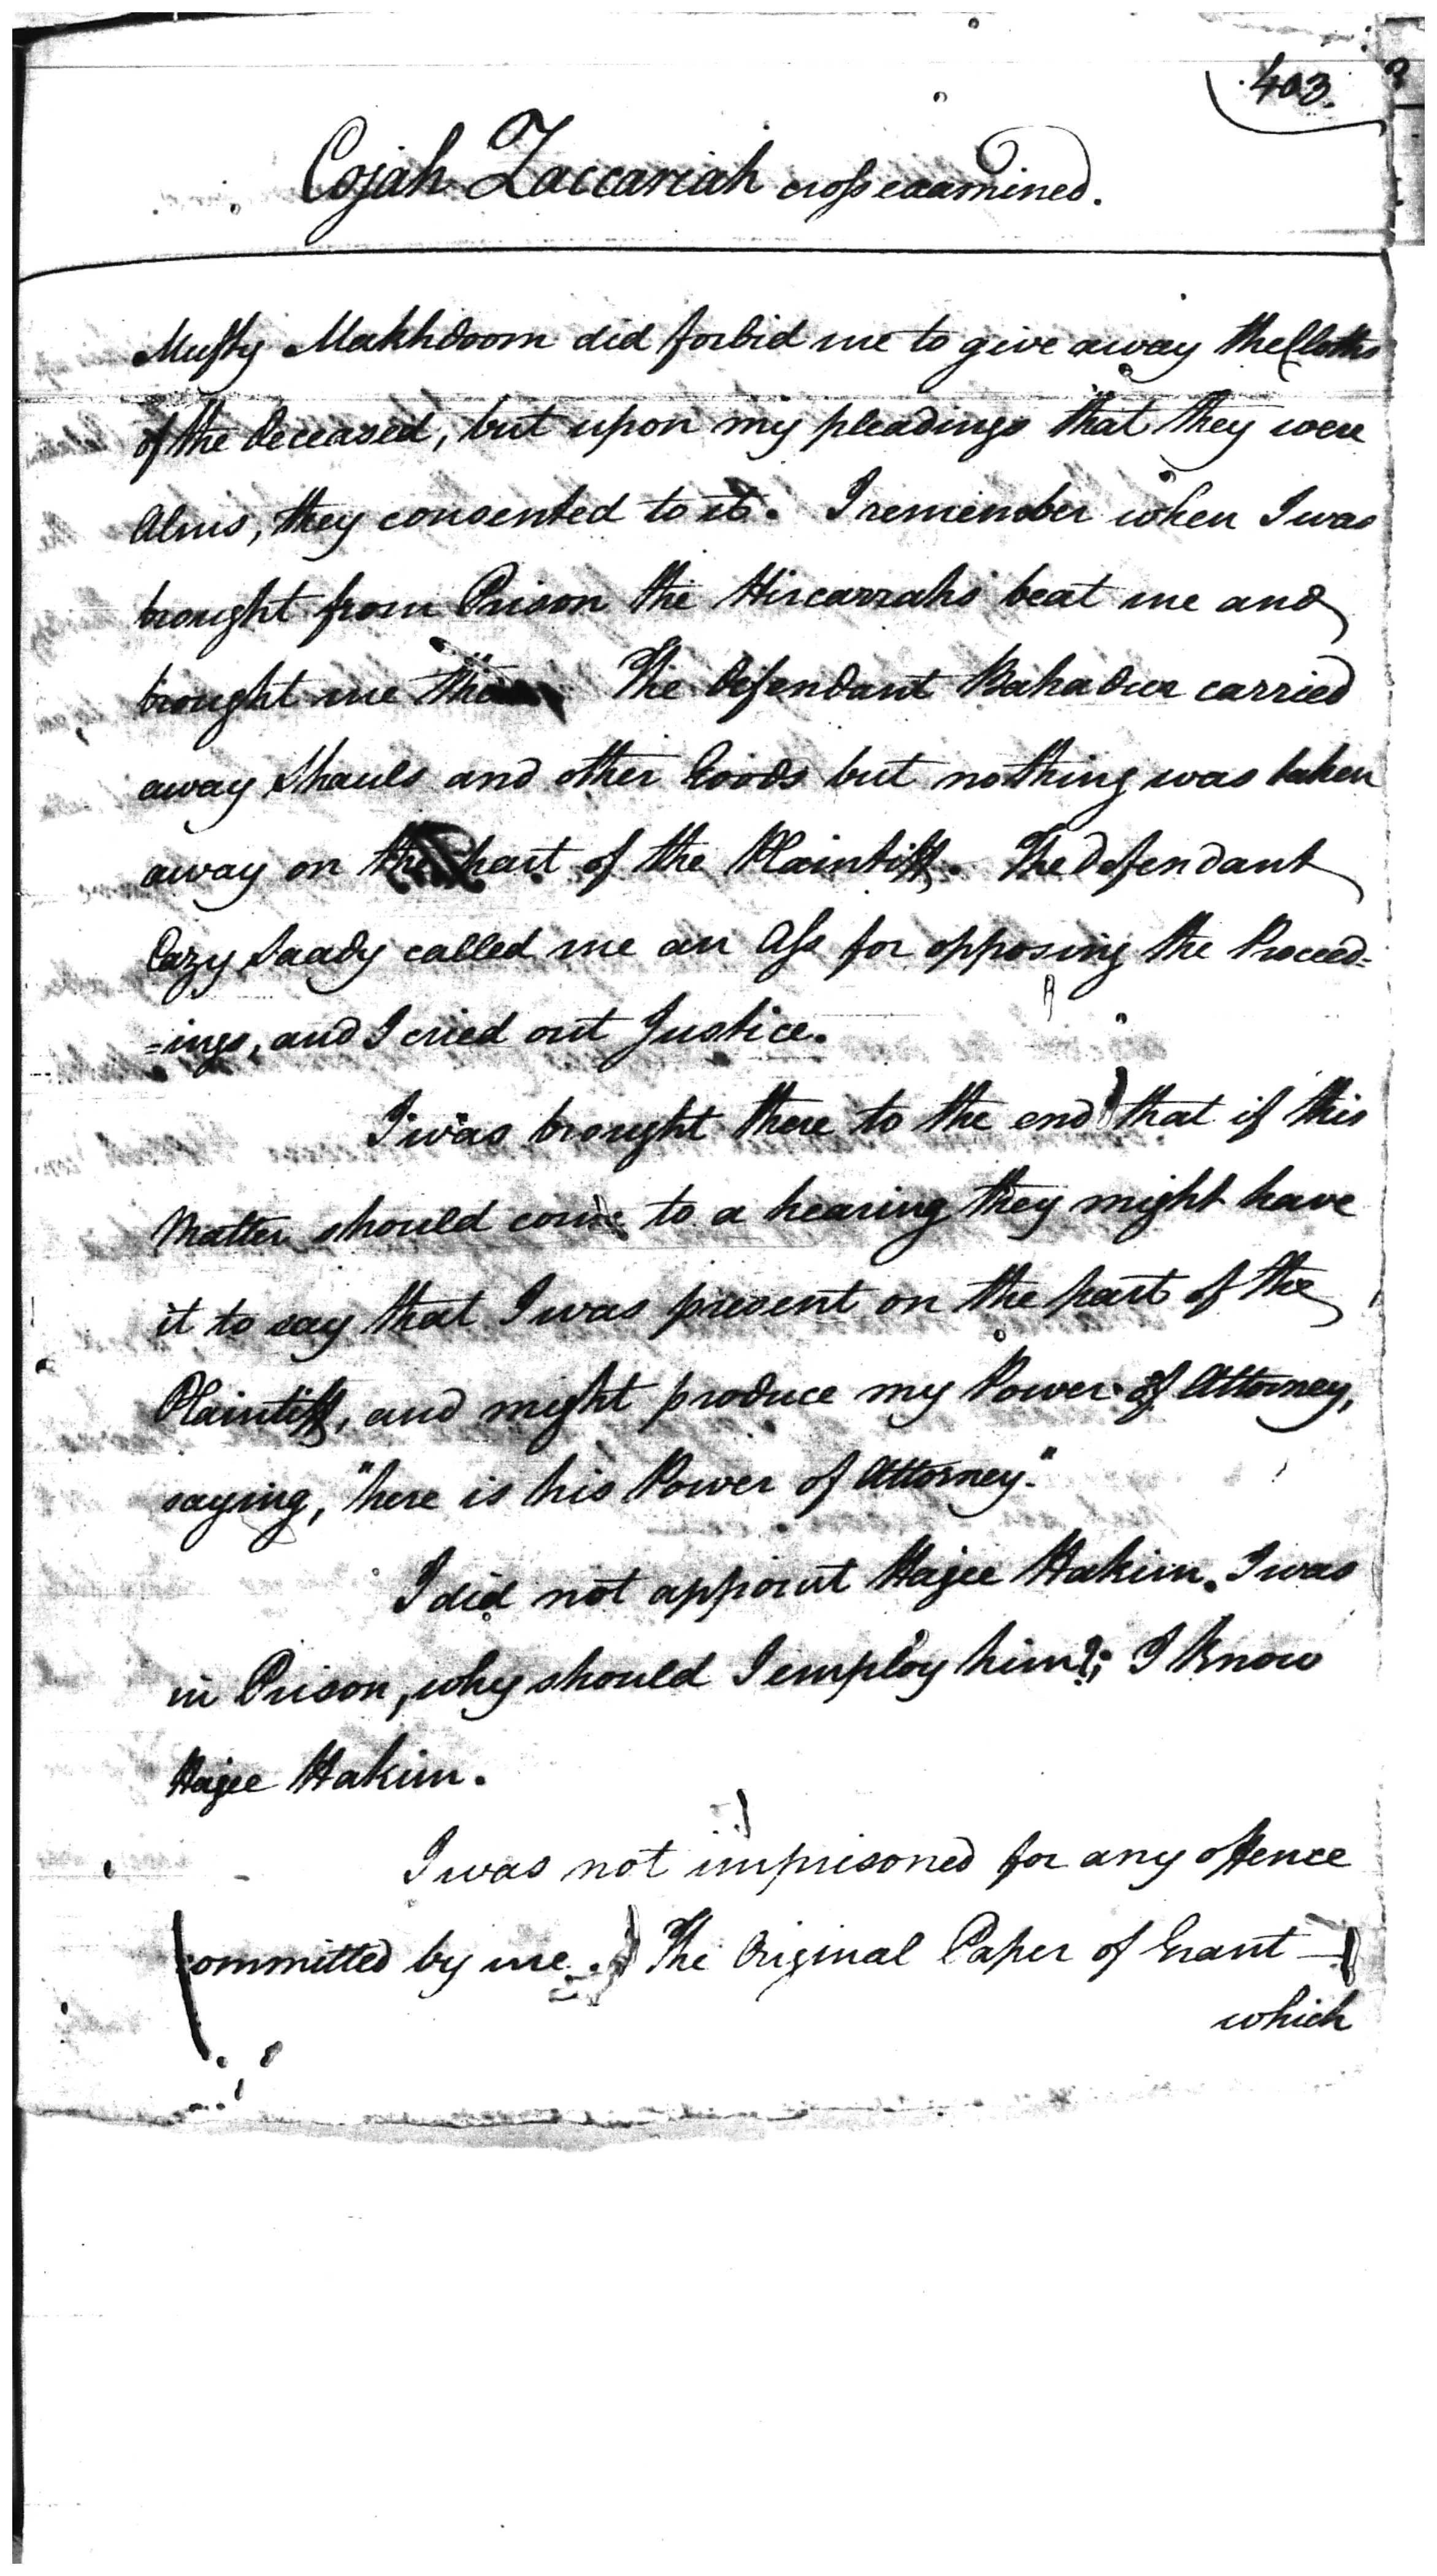 403.
Cojah Zaccariah cross examined.
Mufty Makhdoom did forbid me to give away the Cloths
of the deceased, but upon my pleadings that they were
Alms, they consented to it. I remember when I was
brought from Prison the Hircarrahs beat me and
brought me The Defendant Bahadur carried
away Shauls and other Goods but nothing was taken
away on the part of the Plaintiff. The Defendant
Cazy Saady called me an Ass for opposing the Proceed=
=ings, and I cried out Justice.
I was brought there to the end that if this
Matter should come to a hearing they might have
it to say that I was present on the part of the
Plaintiff, and might produce my Power of Attorney,
saying, "here is his Power of Attorney."
I did not appoint Hajee Hakim. I was
in Prison, why should I employ him?; I know
Hajee Hakim.
I was not imprisoned for any offence
committed by me. The Original Paper of Grant
which